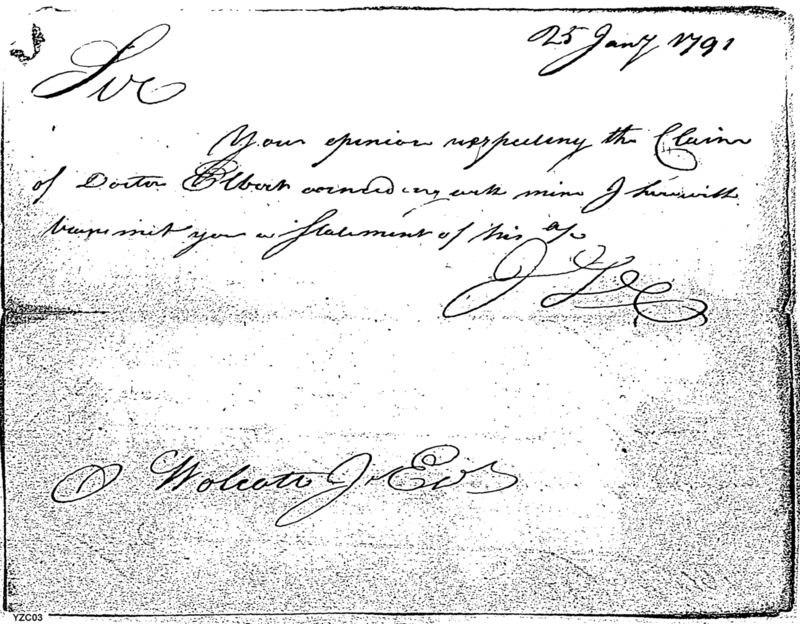 25 Jany 1791
Sir
Your opinion respecting the Claim
of Doctor Elbert coinciding with mine I herewith
transmit you a Statement of his a/c
O Wolcott Jr Esqr
YZC03